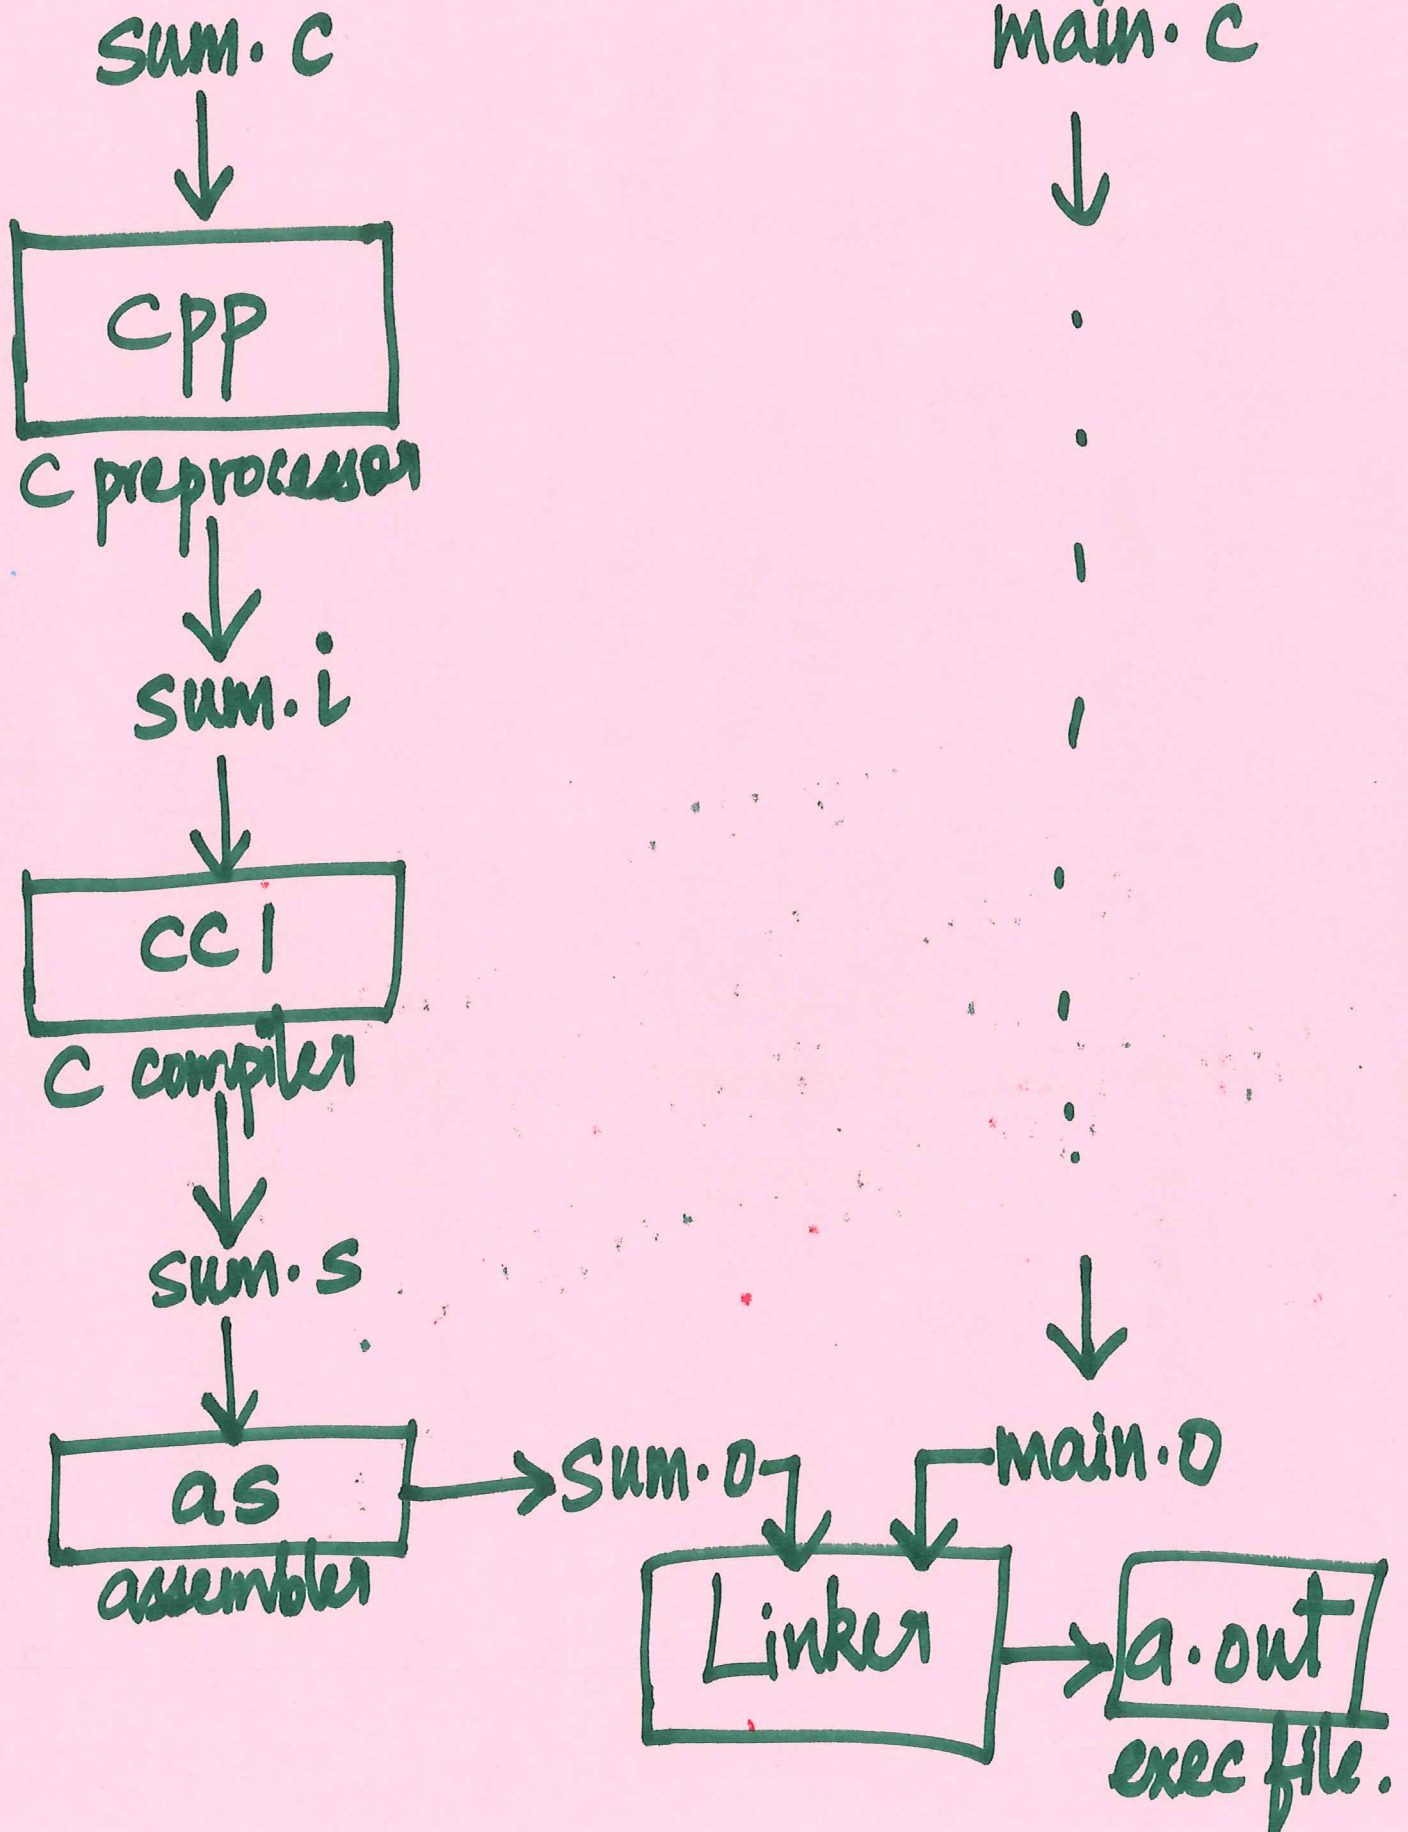 sum.c
main.c
cpp
C preprocessor
sum.i
cc1
C compiler
sum.s
as
assembler
sum.o
main.o
Linker
a.out
exec file.